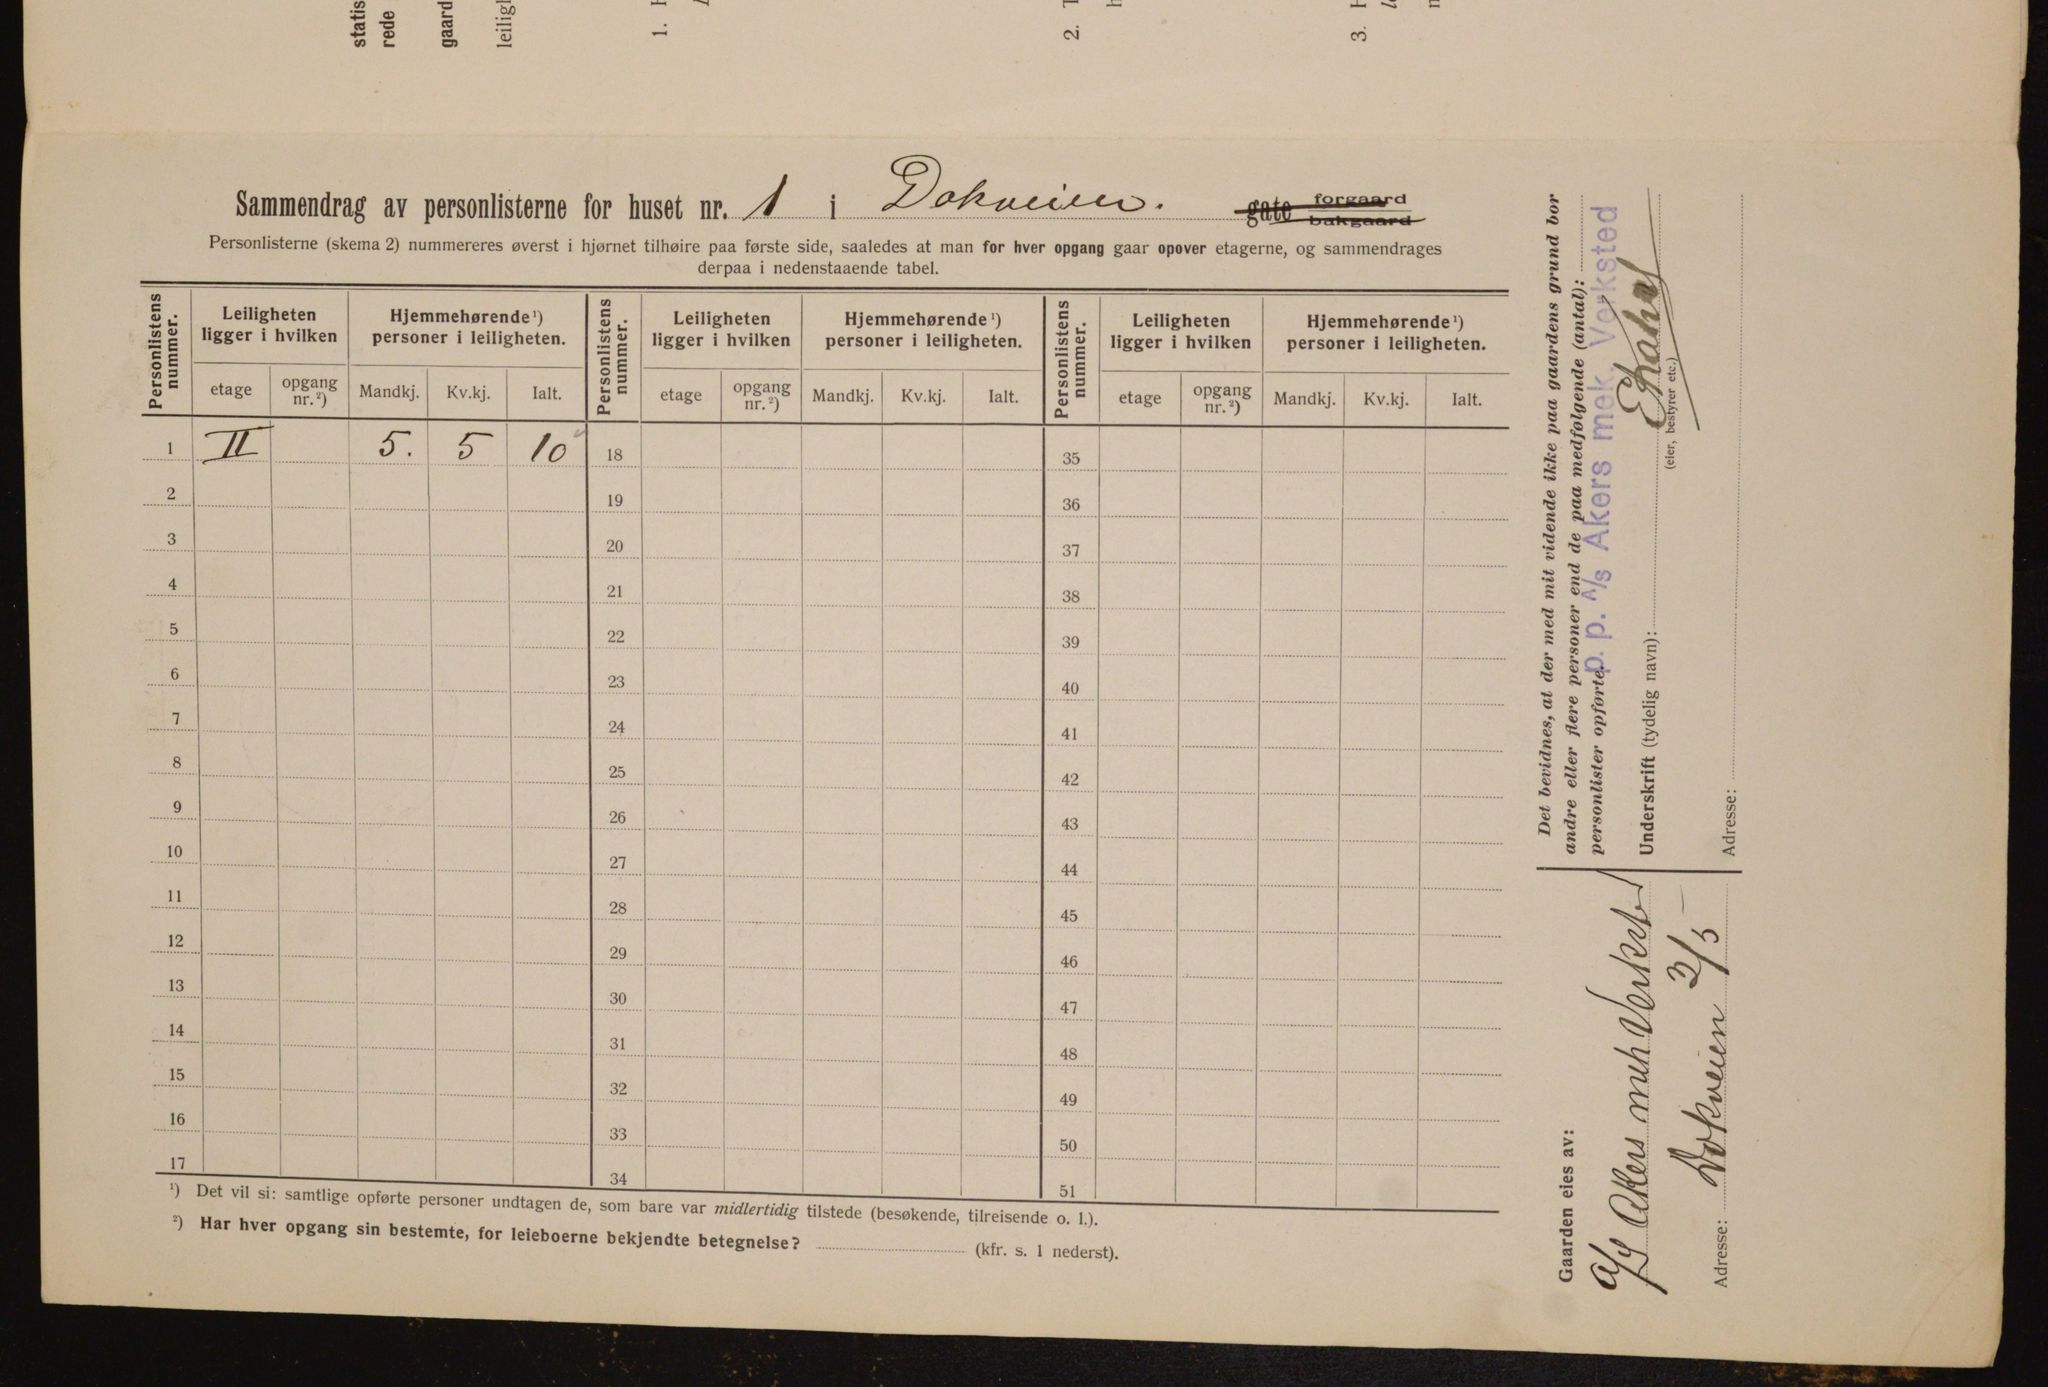 statis
rede
gaard
leilig
1. H
2. T
h
3. H
Sammendrag av personlisterne for huset nr. 1 i Dokveien. gate forgaard bakgaard
Personlisterne (skema 2) nummereres øverst i hjørnet tilhøire paa første side, saaledes at man for hver opgang gaar opover etagerne, og sammendrages
derpaa i nedenstaaende tabel.
Personlistens nummer. Leiligheten ligger i hvilken Hjemmehørende¹) personer i leiligheten. Personlistens nummer. Leiligheten ligger i hvilken Hjemmehørende¹) personer i leiligheten. Personlistens nummer. Leiligheten ligger i hvilken Hjemmehørende¹) personer i leiligheten.
etage opgang nr.²) Mandkj. Kv.kj. Ialt. etage opgang nr.²) Mandkj. Kv.kj. Ialt. etage opgang nr.²) Mandkj. Kv.kj. Ialt.
1 II 5. 5 10 18 35
2 19 36
3 20 37
4 21 38
5 22 39
6 23 40
7 24 41
8 25 42
9 26 43
10 27 44
11 28 45
12 29 46
13 30 47
14 31 48
15 32 49
16 33 50
17 34 51
¹) Det vil si: samtlige opførte personer undtagen de, som bare var midlertidig tilstede (besøkende, tilreisende o. l.).
²) Har hver opgang sin bestemte, for leieboerne bekjendte betegnelse? (kfr. s. 1 nederst).
Gaarden eies av:
A/S Akers mek Verksted
Adresse: Dokveien 3/5
Det bevidnes, at der med mit vidende ikke paa gaardens grund bor
andre eller flere personer end de paa medfølgende (antal):
personlister opførte.
p. p. A/S Akers mek. Verksted
Underskrift (tydelig navn):
(eier, bestyrer etc.)
Adresse: